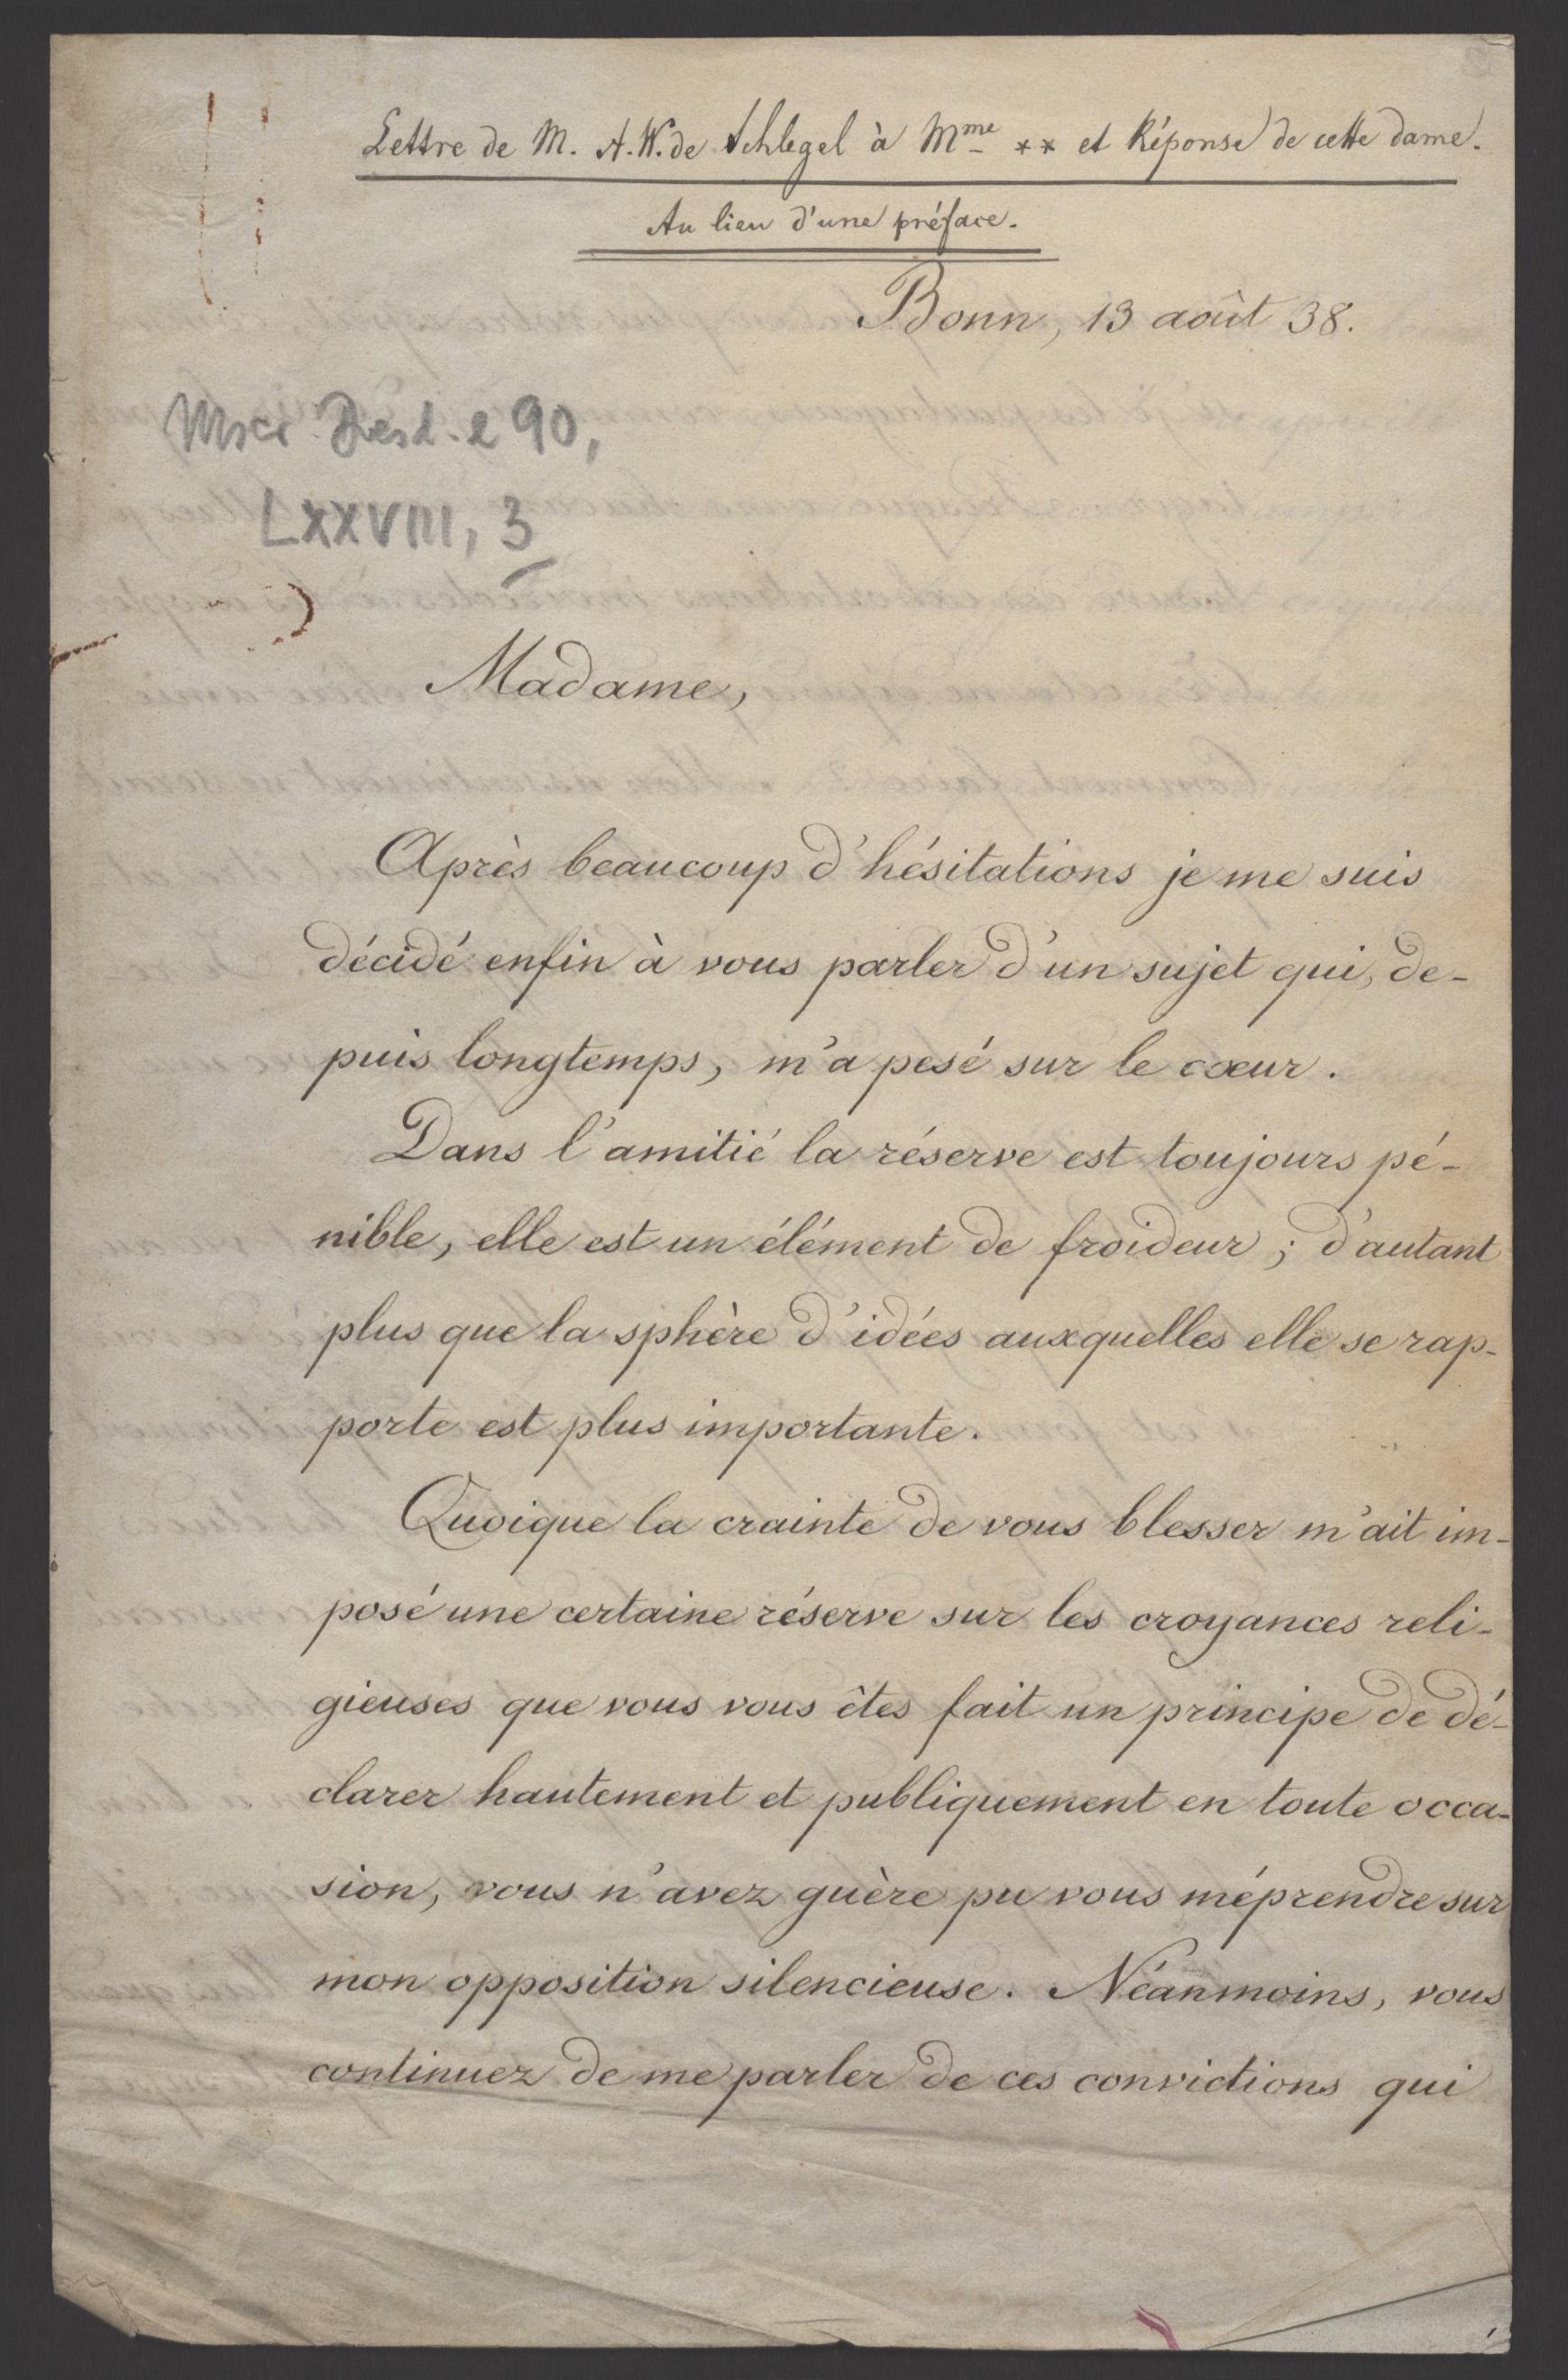 Lettre de M. A.W. de Schlegel à Mme ** et Réponse de cette dame.
Au lieu d'une préface.
Bonn, 13 août 38.
Mscr. Dresd. e 90,
LXXVIII, 3
Madame,
Après beaucoup d'hésitations je me suis
décidé enfin à vous parler d'un sujet qui, de-
puis longtemps, m'a pesé sur le cœur.
Dans l'amitié la réserve est toujours pé-
nible, elle est un élément de froideur; d'autant
plus que la sphère d'idées auxquelles elle se rap-
porte est plus importante.
Quoique la crainte de vous blesser m'ait im-
posé une certaine réserve sur les croyances reli-
gieuses que vous vous êtes fait un principe de dé-
clarer hautement et publiquement en toute occa-
sion, vous n'avez guère pu vous méprendre sur
mon opposition silencieuse. Néanmoins, vous
continuez de me parler de ces convictions qui